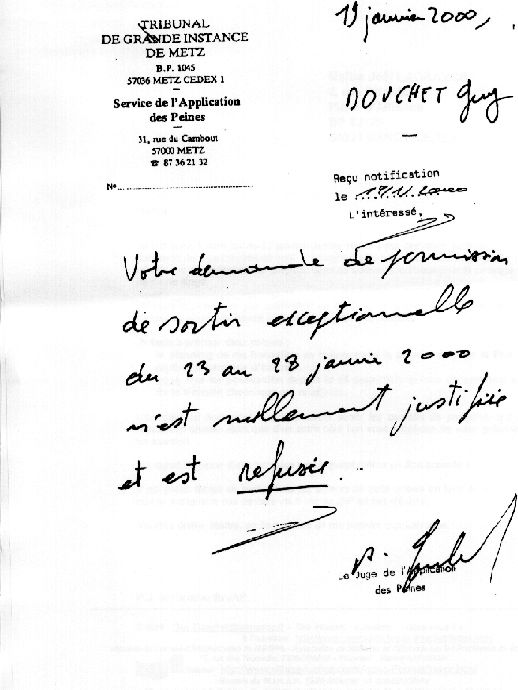 TRIBUNAL
DE GRANDE INSTANCE
DE METZ
B.P. 1045
57036 METZ CEDEX 1
Service de l'Application
des Peines
31, rue du Cambout
57000 METZ
☎ 87 36 21 32
N°
19 janvier 2000,
DOUCHET Guy
Reçu notification
le 19/1/2000
L'intéressé,
Votre demande de permission
de sortir exceptionnelle
du 23 au 28 janvier 2000
n'est nullement justifiée
et est refusée.
Le Juge de l'Application
des Peines